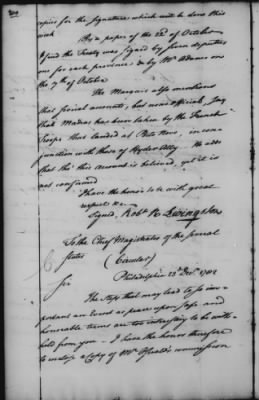 copies for the signature which will be done this
week
By a paper of the 22d of October
I find the Treaty was signed by seven deputies
one for each province & by Mr Adams on
the 7th of October
The Marquis also mentions
that special accounts, but none official, say
that Madras has been taken by the French
Troops that landed at Porto Novo, in con
junction with those of Hyder Ally. He adds
that tho' this account is believed, yet it is
not confirmed
I have the honor to be with great
respect &c
Signed, Robt R Livingston
To the Chief Magistrates of the several
States
(Circular)
Philadelphia 23d Decr 1782
Sir
The steps that may lead to so im
portant an event as peace upon safe and
honorable terms are too interesting to be with
held from you - I have the honor therefore
to enclose a Copy of Mr Oswald's commission